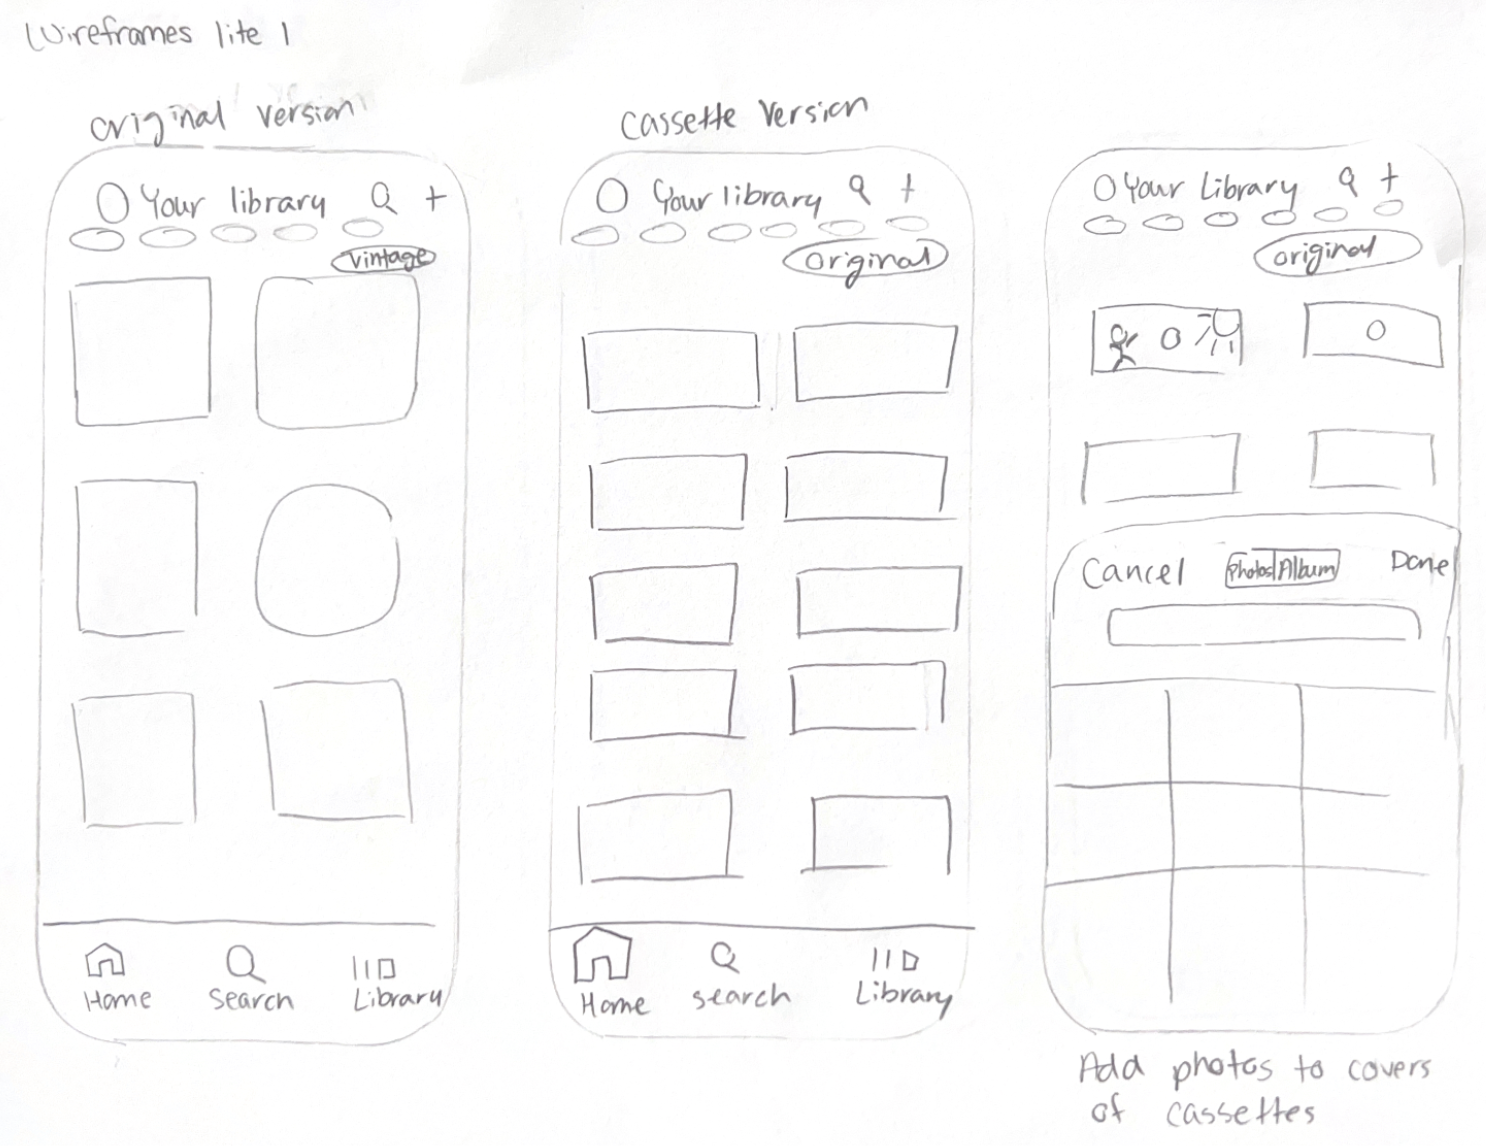 Wireframes lite 1
original version
Your library
vintage
Home
Search
Library
Cassette Version
Your library
original
Home
search
Library
Your Library
original
Cancel
Photos Album
Done
Add photos to covers
of cassettes